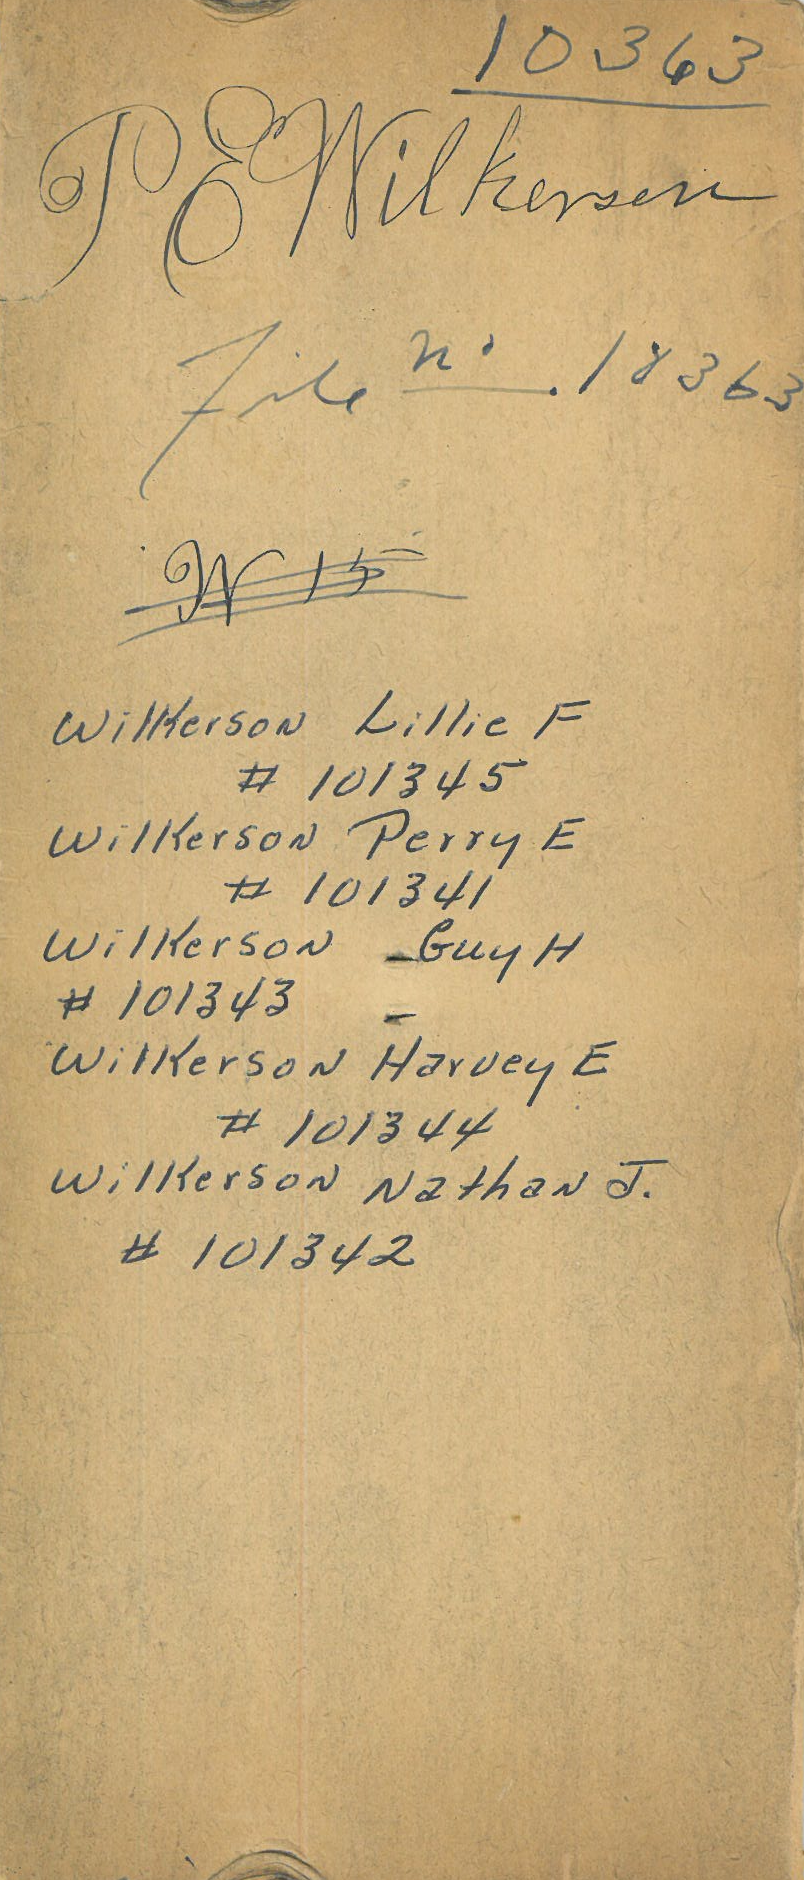 10363
P E Wilkerson
File No. 18363
W 15
Wilkerson Lillie F
# 101345
Wilkerson Perry E
# 101341
Wilkerson Guy H
# 101343
Wilkerson Harvey E
# 101344
Wilkerson Nathan J.
# 101342